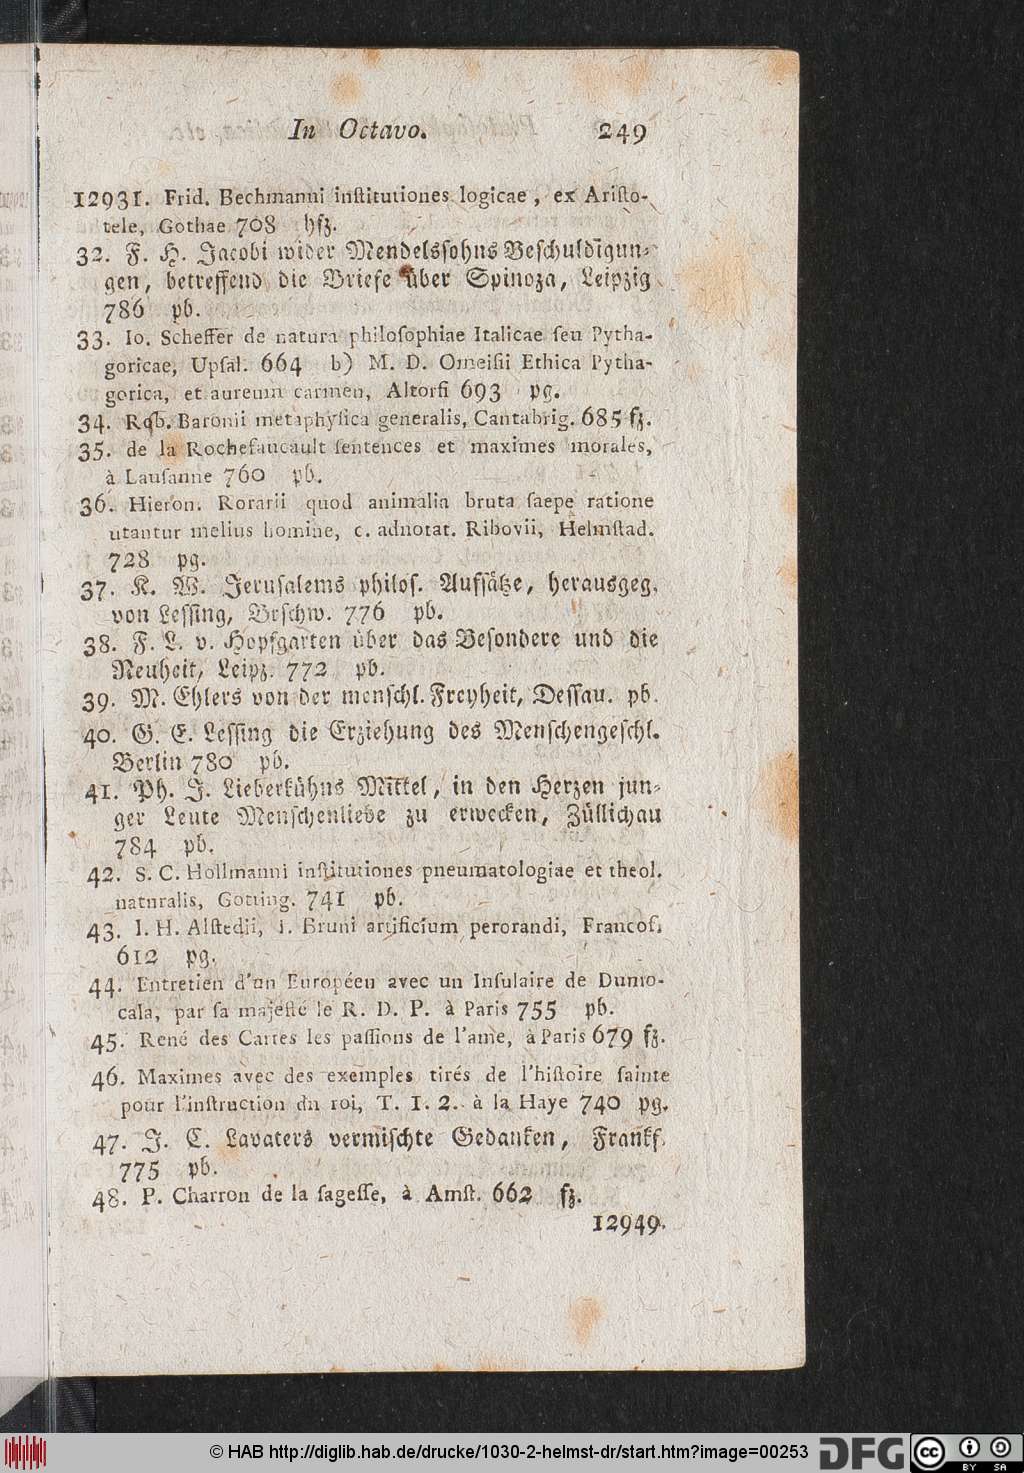 In Octavo. 249
12931. Frid. Bechmanni inſtitutiones logicae, ex Ariſto-
tele, Gothae 708 hfz.
32. F. H. Jacobi wider Mendelsſohns Beſchuldigun-
gen, betreffend die Briefe über Spinoza, Leipzig
786 pb.
33. Io. Scheffer de natura philoſophiae Italicae ſeu Pytha-
goricae, Upſal. 664 b) M. D. Omeiſii Ethica Pytha-
gorica, et aureum carmen, Altorfi 693 pg.
34. Rob. Baronii metaphyſica generalis, Cantabrig. 685 fz.
35. de la Rochefaucault ſentences et maximes morales,
à Lauſanne 760 pb.
36. Hieron. Rorarii quod animalia bruta ſaepe ratione
utantur melius homine, c. adnotat. Ribovii, Helmſtad.
728 pg.
37. K. W. Jeruſalems philoſ. Aufſätze, herausgeg.
von Leſſing, Brſchw. 776 pb.
38. F. L. v. Hopfgarten über das Beſondere und die
Neuheit, Leipz. 772 pb.
39. M. Ehlers von der menſchl. Freyheit, Deſſau. pb.
40. G. E. Leſſing die Erziehung des Menſchengeſchl.
Berlin 780 pb.
41. Ph. J. Lieberkühns Mittel, in den Herzen jun-
ger Leute Menſchenliebe zu erwecken, Züllichau
784 pb.
42. S. C. Hollmanni inſtitutiones pneumatologiae et theol.
naturalis, Gotting. 741 pb.
43. I. H. Alſtedii, I. Bruni artificium perorandi, Francof.
612 pg.
44. Entretien d'un Européen avec un Inſulaire de Dumo-
cala, par ſa majeſté le R. D. P. à Paris 755 pb.
45. René des Cartes les paſſions de l'ame, à Paris 679 fz.
46. Maximes avec des exemples tirés de l'hiſtoire ſainte
pour l'inſtruction du roi, T. 1. 2. à la Haye 740 pg.
47. J. C. Lavaters vermiſchte Gedanken, Frankf.
775 pb.
48. P. Charron de la ſageſſe, à Amſt. 662 fz.
12949.
© HAB http://diglib.hab.de/drucke/1030-2-helmst-dr/start.htm?image=00253 DFG cc BY SA